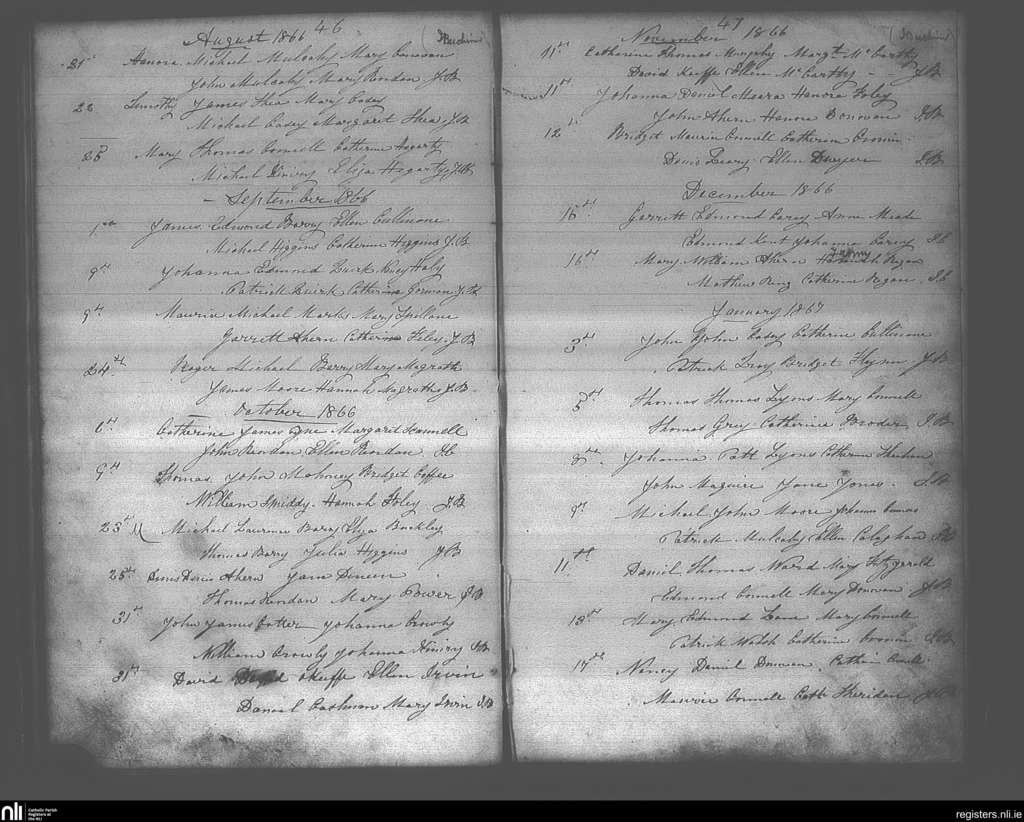 46
August 1866
31st Honora Michael Mulcahy Mary Donovan
John Mulcahy Mary Riordan J.B
22 Timothy James Shea Mary Casey
Michael Casey Margaret Shea J.B
25 Mary Thomas Connell Catherine Hogarty
Michael Eliza Hogarty J.B
September 1866
1st James Edmond Barry Ellen Cullinane
Michael Higgins Catherine Higgins J.B
9th Johanna Edmond Quirk Mary Haly
Patrick Quirk Catherine Gorman J.B
9th Maurice Michael Mark Mary Spillane
Garrett Ahern Catherine Foley J.B
24th Roger Michael Barry Mary Magrath
James Moore Hannah Magrath J.B
October 1866
6th Catherine James Margaret Scannell
John Riordan Ellen Riordan
9th Thomas John Mahoney Bridget Coffee
William Smiddy Hannah Foley J.B
23rd Michael Laurence Barry Eliza Buckley
Thomas Barry Julia Higgins J.B
25th Denis Denis Ahern Jane Dineen
Thomas Riordan Mary Power J.B
31st John James Cotter Johanna Crowly
William Crowly Johanna Kiniry J.B
31st David David Keeffe Ellen Irvin
Daniel Cashman Mary Irvin J.B
47
November 1866
11th Catherine Thomas Margt. McCarthy
David Keeffe Ellen McCarthy J.B
11th Johanna Daniel Meara Hanora Foley
John Ahern Hanora Donovan J.B
12th Bridget Maurice Connell Catherine Cronin
Denis Leary Ellen Dwyer J.B
December 1866
16th Garrett Edmond Carey Anne Meade
Edmond Kent Johanna Carey
16th Mary William Ahern Hannah Regan
Mathew Ring Catherine Regan
January 1867
3rd John John Casey Catherine Cullinane
Patrick Bridget Flynn J.B
5th Thomas Thomas Lyons Mary Connell
Thomas Grey Catherine Broder J.B
8th Johanna Patt Lyons Catherine Sheehan
John Maguire Jane Jones J.B
9th Michael John Moore Johanna
Patrick Mulcahy Ellen Calaghan J.B
11th Daniel Thomas Ward Mary Fitzgerald
Edmond Connell Mary Donovan J.B
13th Mary Edmond Lane Mary Connell
Patrick Walsh Catherine Cronin J.B
17th Nancy Daniel Donovan
Maurice Connell Cath Sheridan
nli
Catholic Parish
Registers at
the NLI
registers.nli.ie